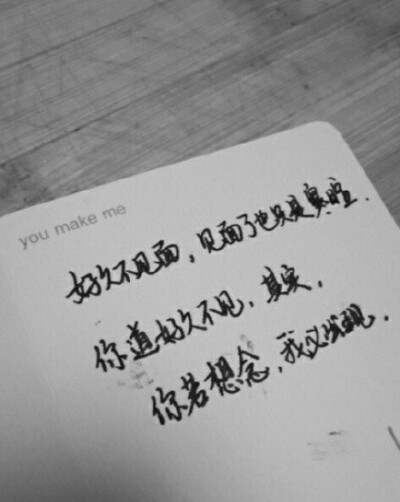 you make me
好久不见面，见面了也只是寒暄.
你道好久不见，其实，
你若想念，我发现.